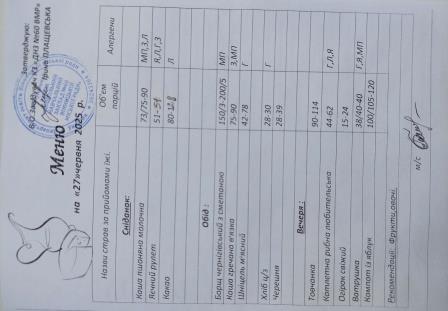 Затверджую:
В/О Завідувач КЗ «ДНЗ №60 ВМР»
Ірина ПЛАЩЕВСЬКА
Меню
на «27»червня 2025 р.
Назви страв за прийомами їжі. Об'єм порцій Алергени
Сніданок:
Каша пшоняна молочна 73/75-90 МП,З,Л
Яєчний рулет 51-51 Я,Л,Г,З
Какао 80- Л
Обід :
Борщ чернігівський з сметаною 150/3-200/5 МП
Каша гречана в'язка 75-90 З,МП
Шніцель м'ясний 42-78 Г
Хліб ц/з 28-30 Г
Черешня 28-39
Вечеря :
Товчанка 90-114
Котлетка рибна любительська 44-62 Г,Л,Я
Огірок свіжий 15-24
Ватрушка 38/40-40 Г,Я,МП
Компот із яблук 100/105-120
Рекомендації: Фрукти,овочі.
м/с